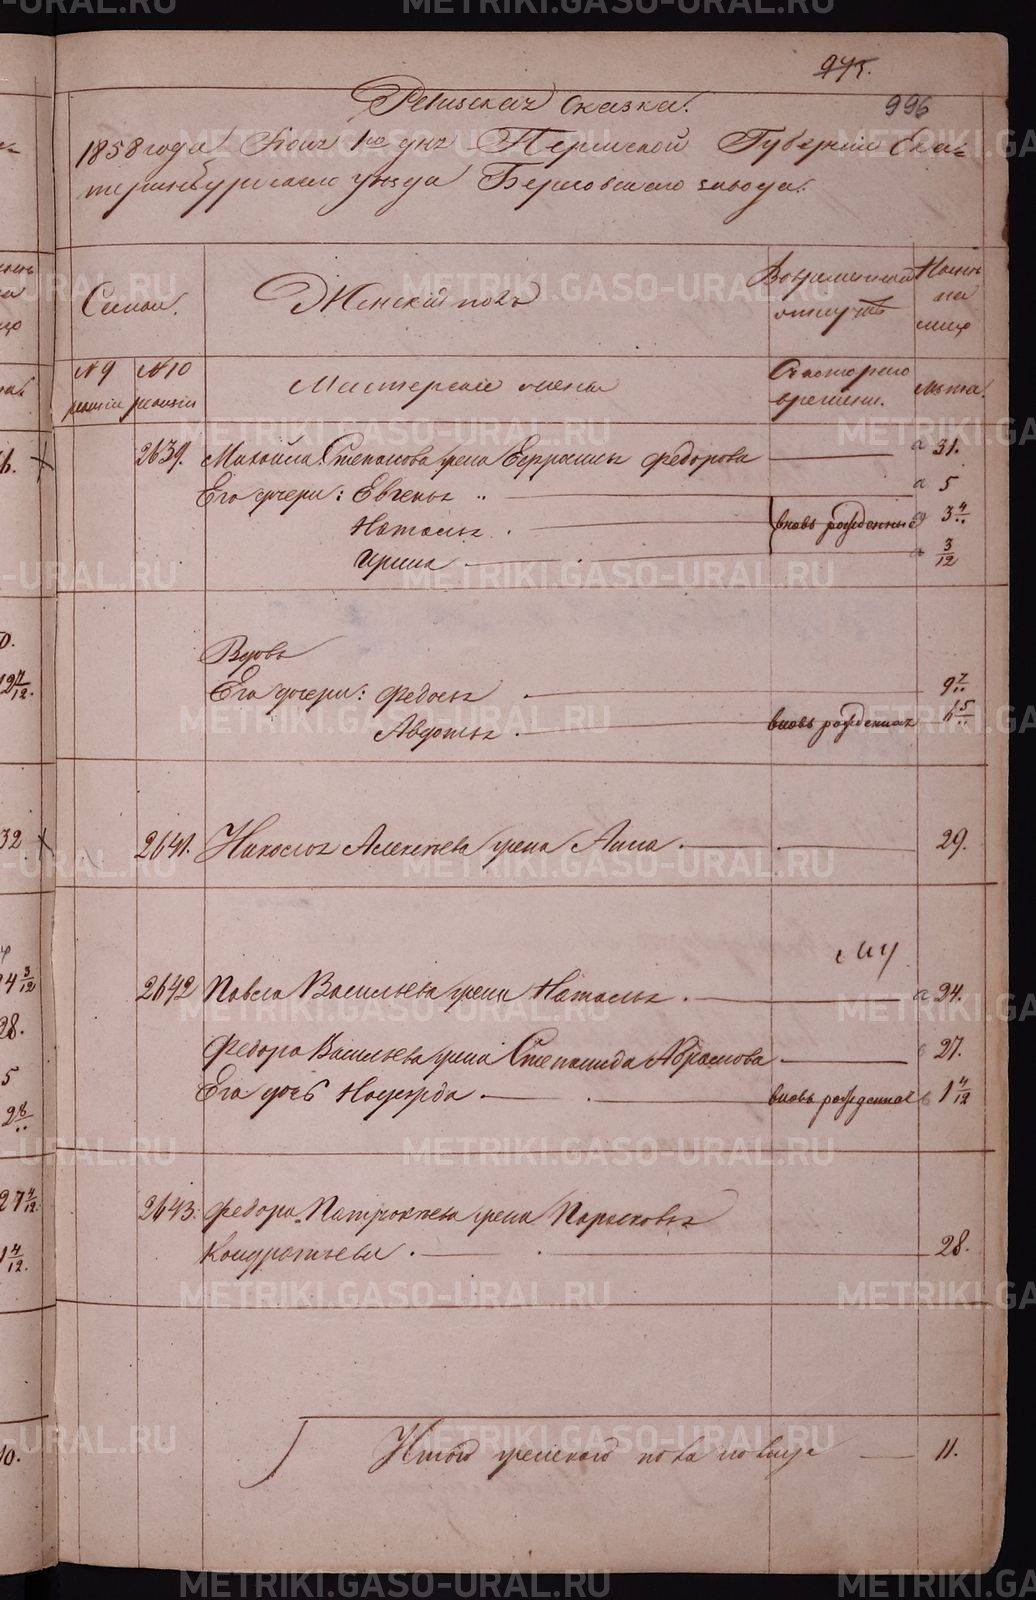 975.
996
Ревизская Сказка.
1858 года 1го дня Пермской Губернии Ека=
теринбургского уезда Березовского завода.
Семьи. Женскій полъ Во временной отлучкѣ Ныне на лицо
№ 9 ревизіи № 10 ревизіи Мастерскіе жены Съ котораго времени. лѣта.
2639. Михайла Степанова жена Федорова а 31.
Его дочери: Евгенья а 5
Наталья вновь рожденные 3 4/..
Ирина 3/12
Вдова
Его дочери: Федосья 9 7/..
Авдотья вновь рожденная 5/..
2641. Алексѣева жена Анна 29.
2642 Павла Васильева жена Наталья а 24.
Федора Васильева жена Степанида Абрамова 27.
Его дочь Надежда вновь рожденная 1 4/12
2643. Федора Патрокѣева жена Парасковья
Кондратьева 28.
Итого женского пола на лицо 11.
METRIKI.GASO-URAL.RU